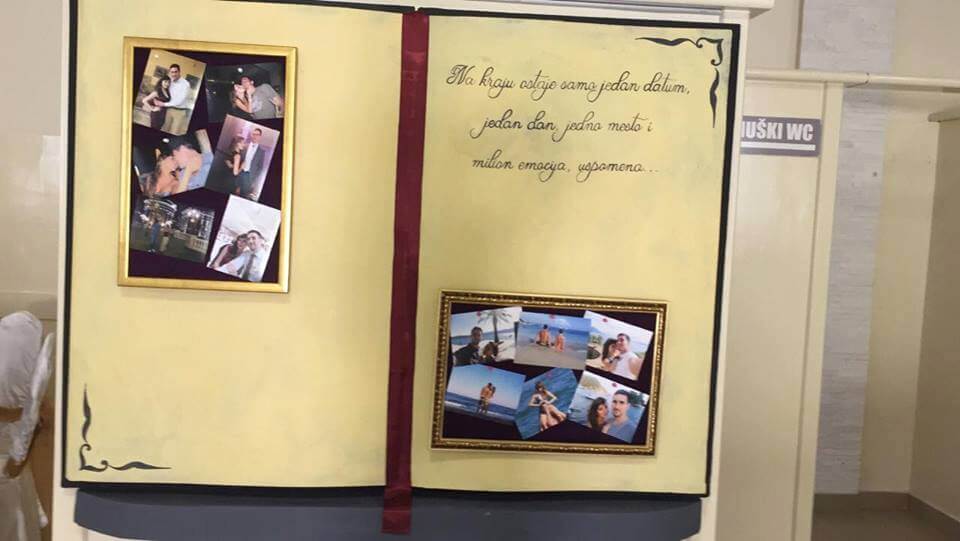 Na kraju ostaje samo jedan datum,
jedan dan, jedno mesto i
milion emocija, uspomena...
MUŠKI WC